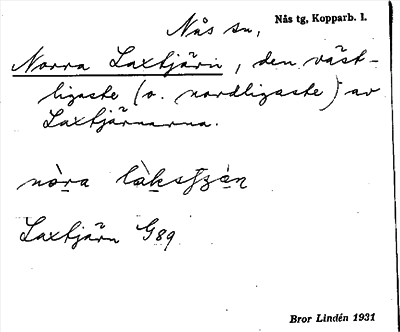 Nås sn, Nås tg, Kopparb. l.
Norra Laxtjärn, den väst-
ligaste (o. nordligaste) av
Laxtjärnarna.
Laxtjärn G89
Bror Lindén 1931